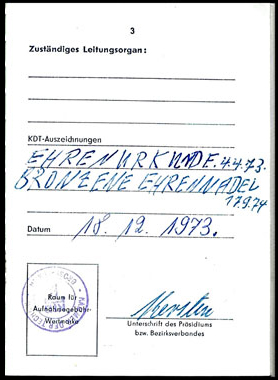 3
Zuständiges Leitungsorgan:
KDT-Auszeichnungen
EHRENURKUNDE. 4.4.73.
BRONZENE EHRENNADEL
17.9.74
Datum 18. 12. 1973.
Raum für
Aufnahmegebühr-
Wertmarke
Unterschrift des Präsidiums
bzw. Bezirksverbandes